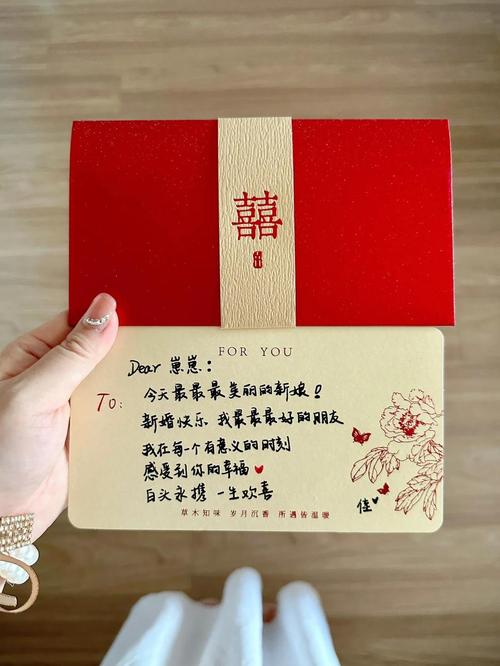 囍
FOR YOU
Dear 崽崽:
TO:
今天最最最美丽的新娘!
新婚快乐 我最最最好的朋友
我在每一个有意义的时刻
感受到你的幸福
白头永携 一生欢喜
佳
草木知味 岁月沉香 所遇皆温暖